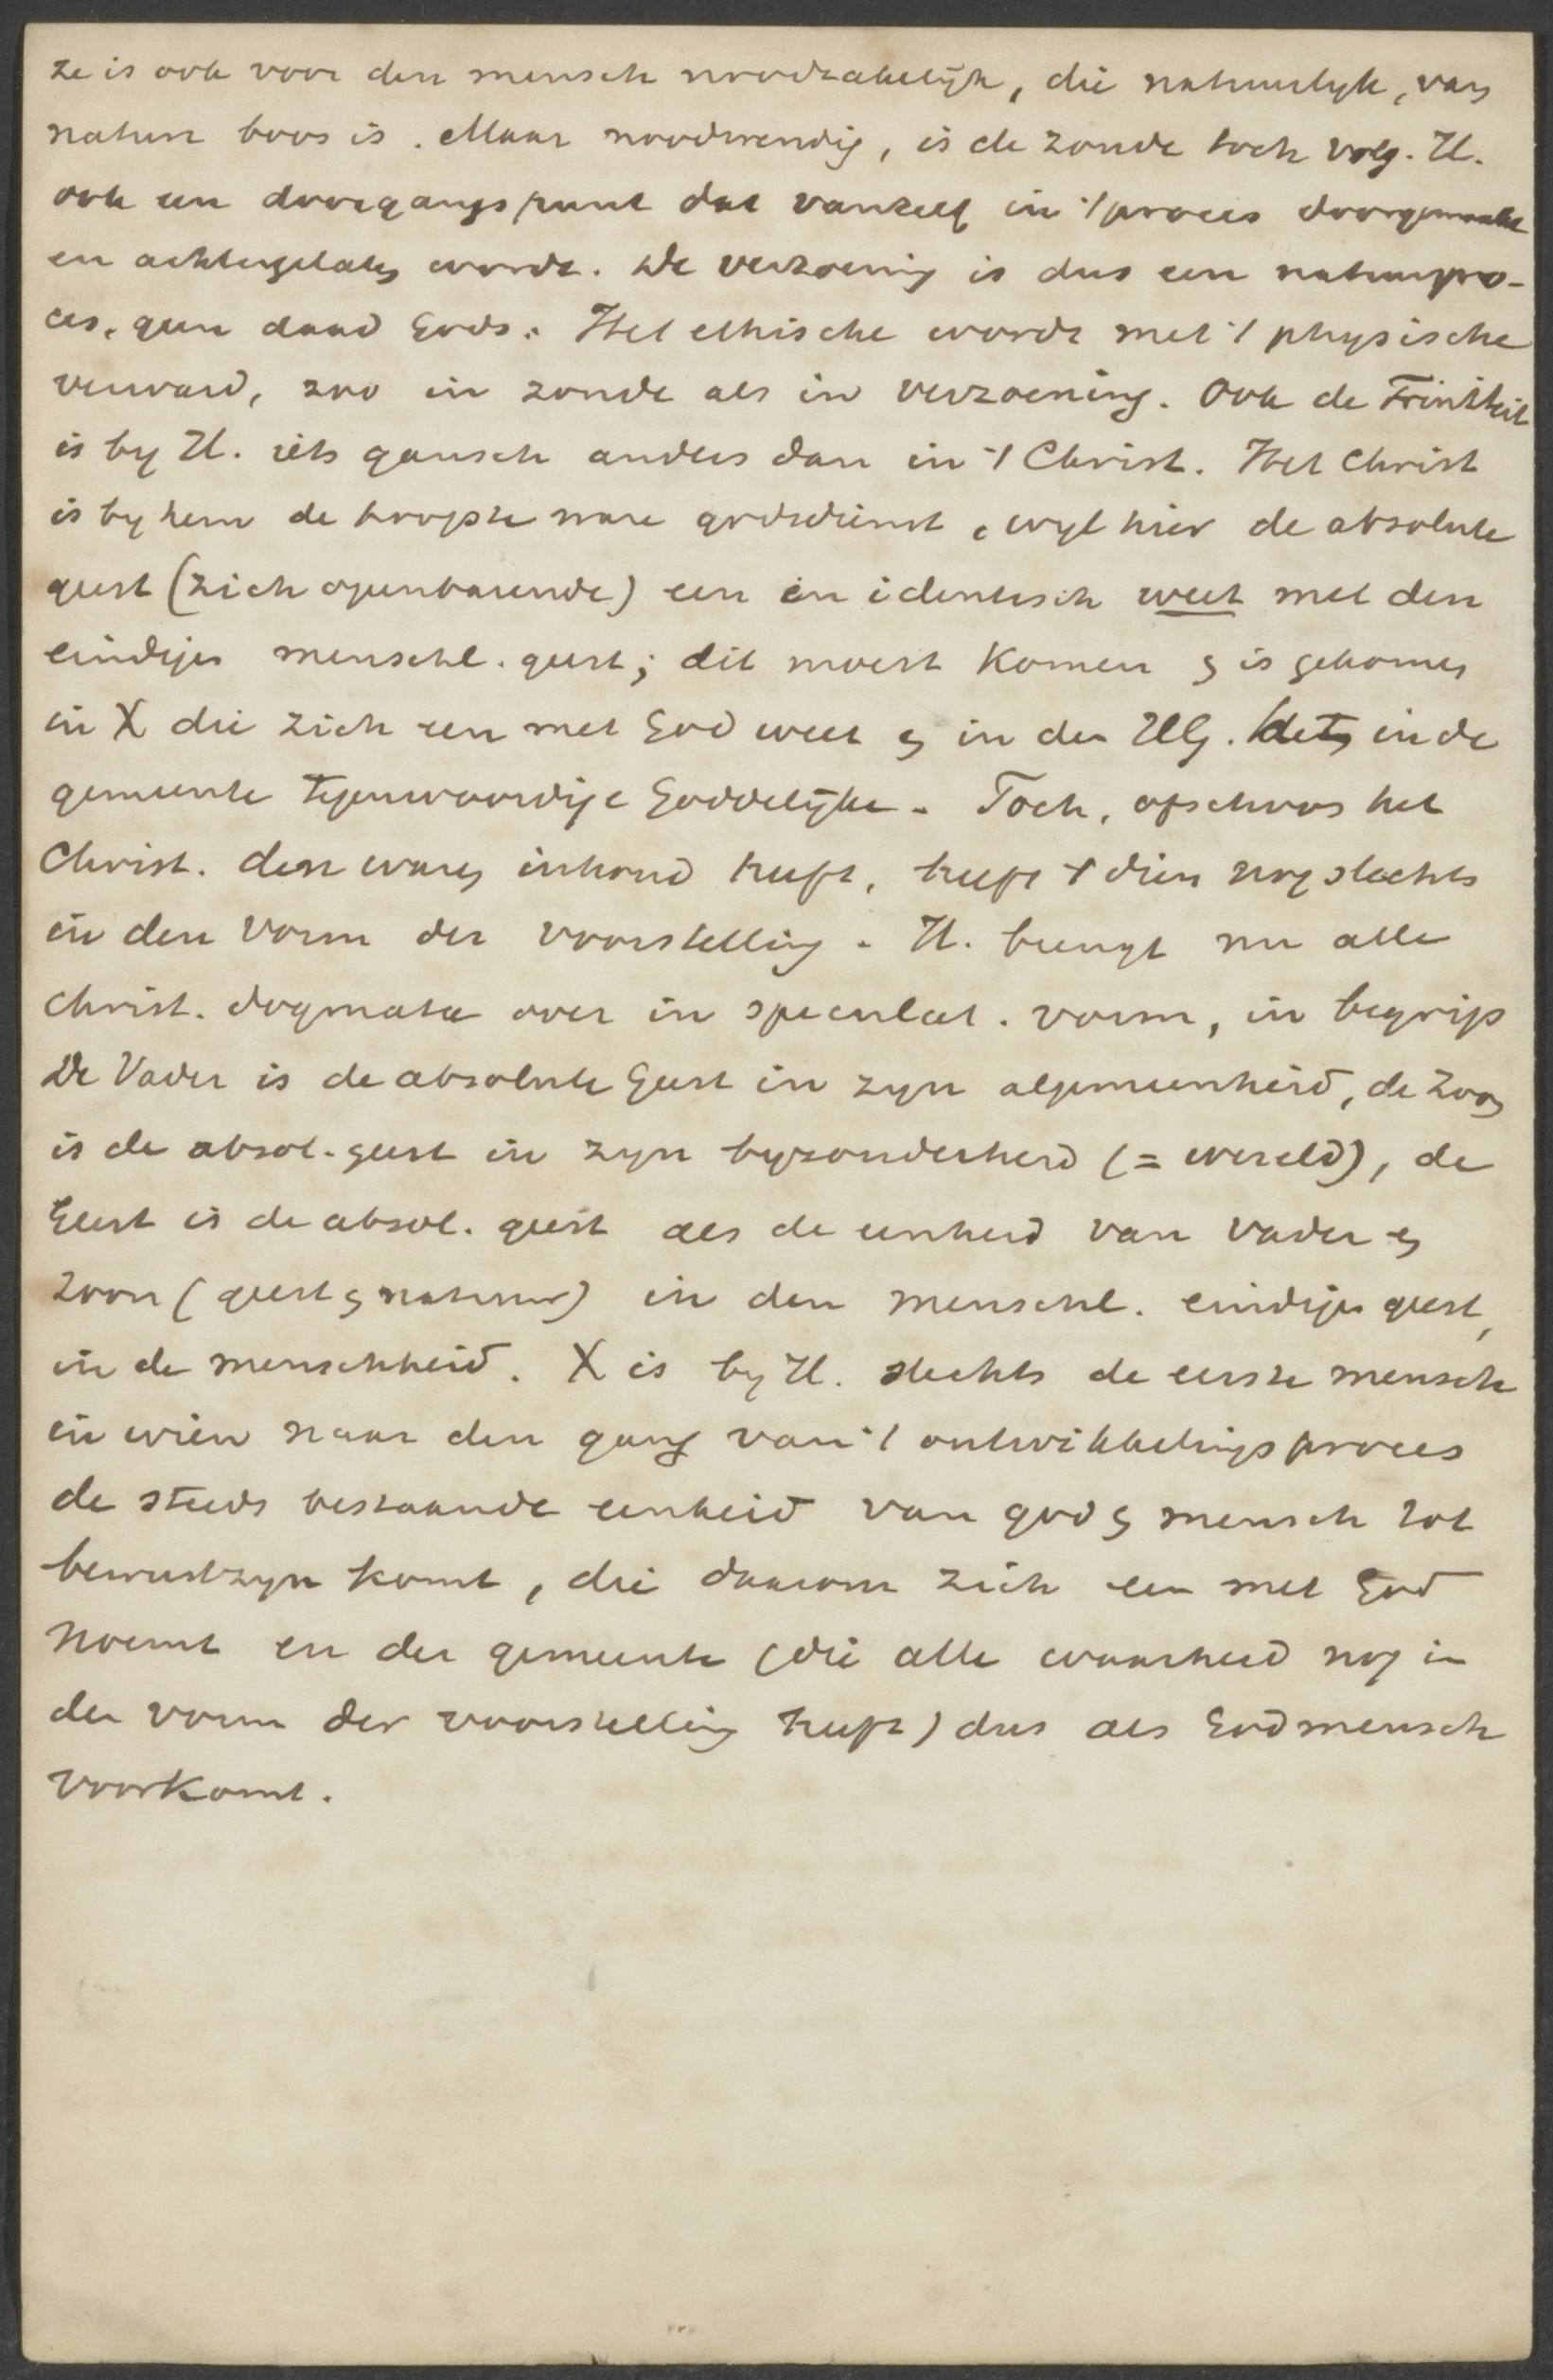 ze is ook voor den mensch noodzakelijk, die natuurlyk, van
nature boos is. Maar noodwendig, is de zonde toch volg. H.
ook een doorgangspunt dat vanzelf in 't proces doorgemaakt
en achtergelaten wordt. De verzoening is dus een natuurpro-
ces, geen daad Gods. Het ethische wordt met 't physische
verward, zoo in zonde als in verzoening. Ook de Triniteit
is by H. iets gansch anders dan in 't Christ. Het Christ
is by hem de hoogste ware godsdienst, wyl hier de absolute
geest (zich openbarende) een en identisch weet met den
eindigen menschl. geest; dit moest komen en is gekomen
in X die zich een met God weet en in den HG. in de
gemeente tegenwoordige Goddelijke. Toch, ofschoon het
Christ. den waren inhoud heeft, heeft 't dien nog slechts
in den vorm der voorstelling. H. brengt nu alle
Christ. dogmata over in speculat. vorm, in begrip
De Vader is de absolute Geest in zyn algemeenheid, de Zoon
is de absol. geest in zyn byzonderheid (= wereld), de
Geest is de absol. geest als de eenheid van Vader en
Zoon (geest en natuur) in den menschl. eindigen geest,
in de menschheid. X is by H. slechts de eerste mensch
in wien naar den gang van 't ontwikkelingsproces
de steeds bestaande eenheid van god en mensch tot
bewustzyn komt, die daarom zich een met God
noemt en der gemeente (die alle waarheid nog in
den vorm der voorstelling heeft) dus als Godmensch
voorkomt.